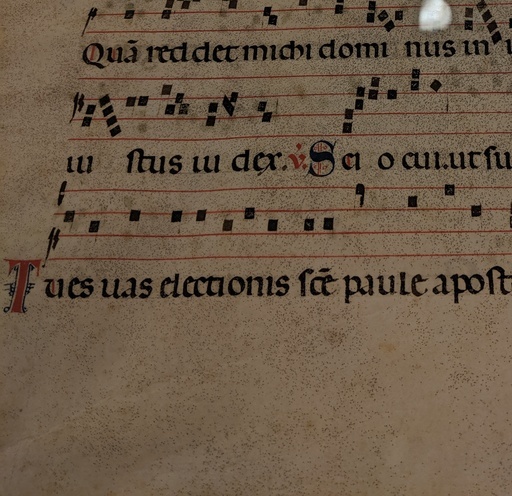 Quā reddet michi domi nus in
iu stus iu dex. ℣. Sci o cui.ut su
Tu es uas electionis scē paule apost